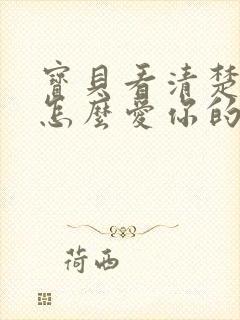 寶貝看清楚
怎麼愛你的
荷西